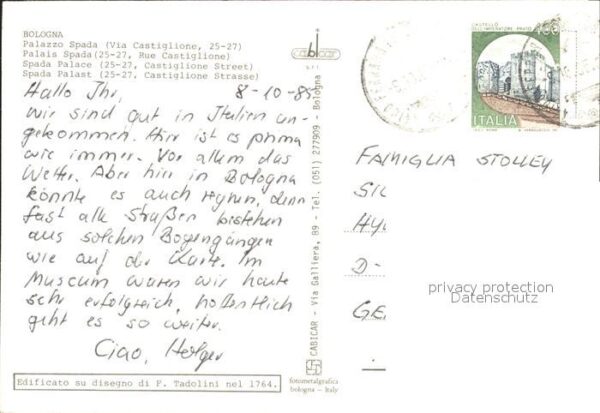 BOLOGNA
Palazzo Spada (Via Castiglione, 25-27)
Palais Spada (25-27, Rue Castiglione)
Spada Palace (25-27, Castiglione Street)
Spada Palast (25-27, Castiglione Strasse)
Hallo Ihr, 8-10-85
wir sind gut in Italien an-
gekommen. Hier ist es prima
wie immer. Vor allem das
Wetter. Aber hier in Bologna
könnte es auch regnen, denn
fast alle Straßen bestehen
aus solchen Bogengängen
wie auf der Karte. Im
Museum waren wir heute
sehr erfolgreich, hoffentlich
geht es so weiter.
Ciao, Holger
Edificato su disegno di F. Tadolini nel 1764.
cabicar
s.r.l.
CABICAR - Via Galliera, 89 - Tel. (051) 277909 - Bologna
fotometalgrafica
bologna - Italy
CASTELLO
DELL'IMPERATORE PRATO
ITALIA
FAMIGLIA STOLLEY
SIL
HY
D-
GE
privacy protection
Datenschutz